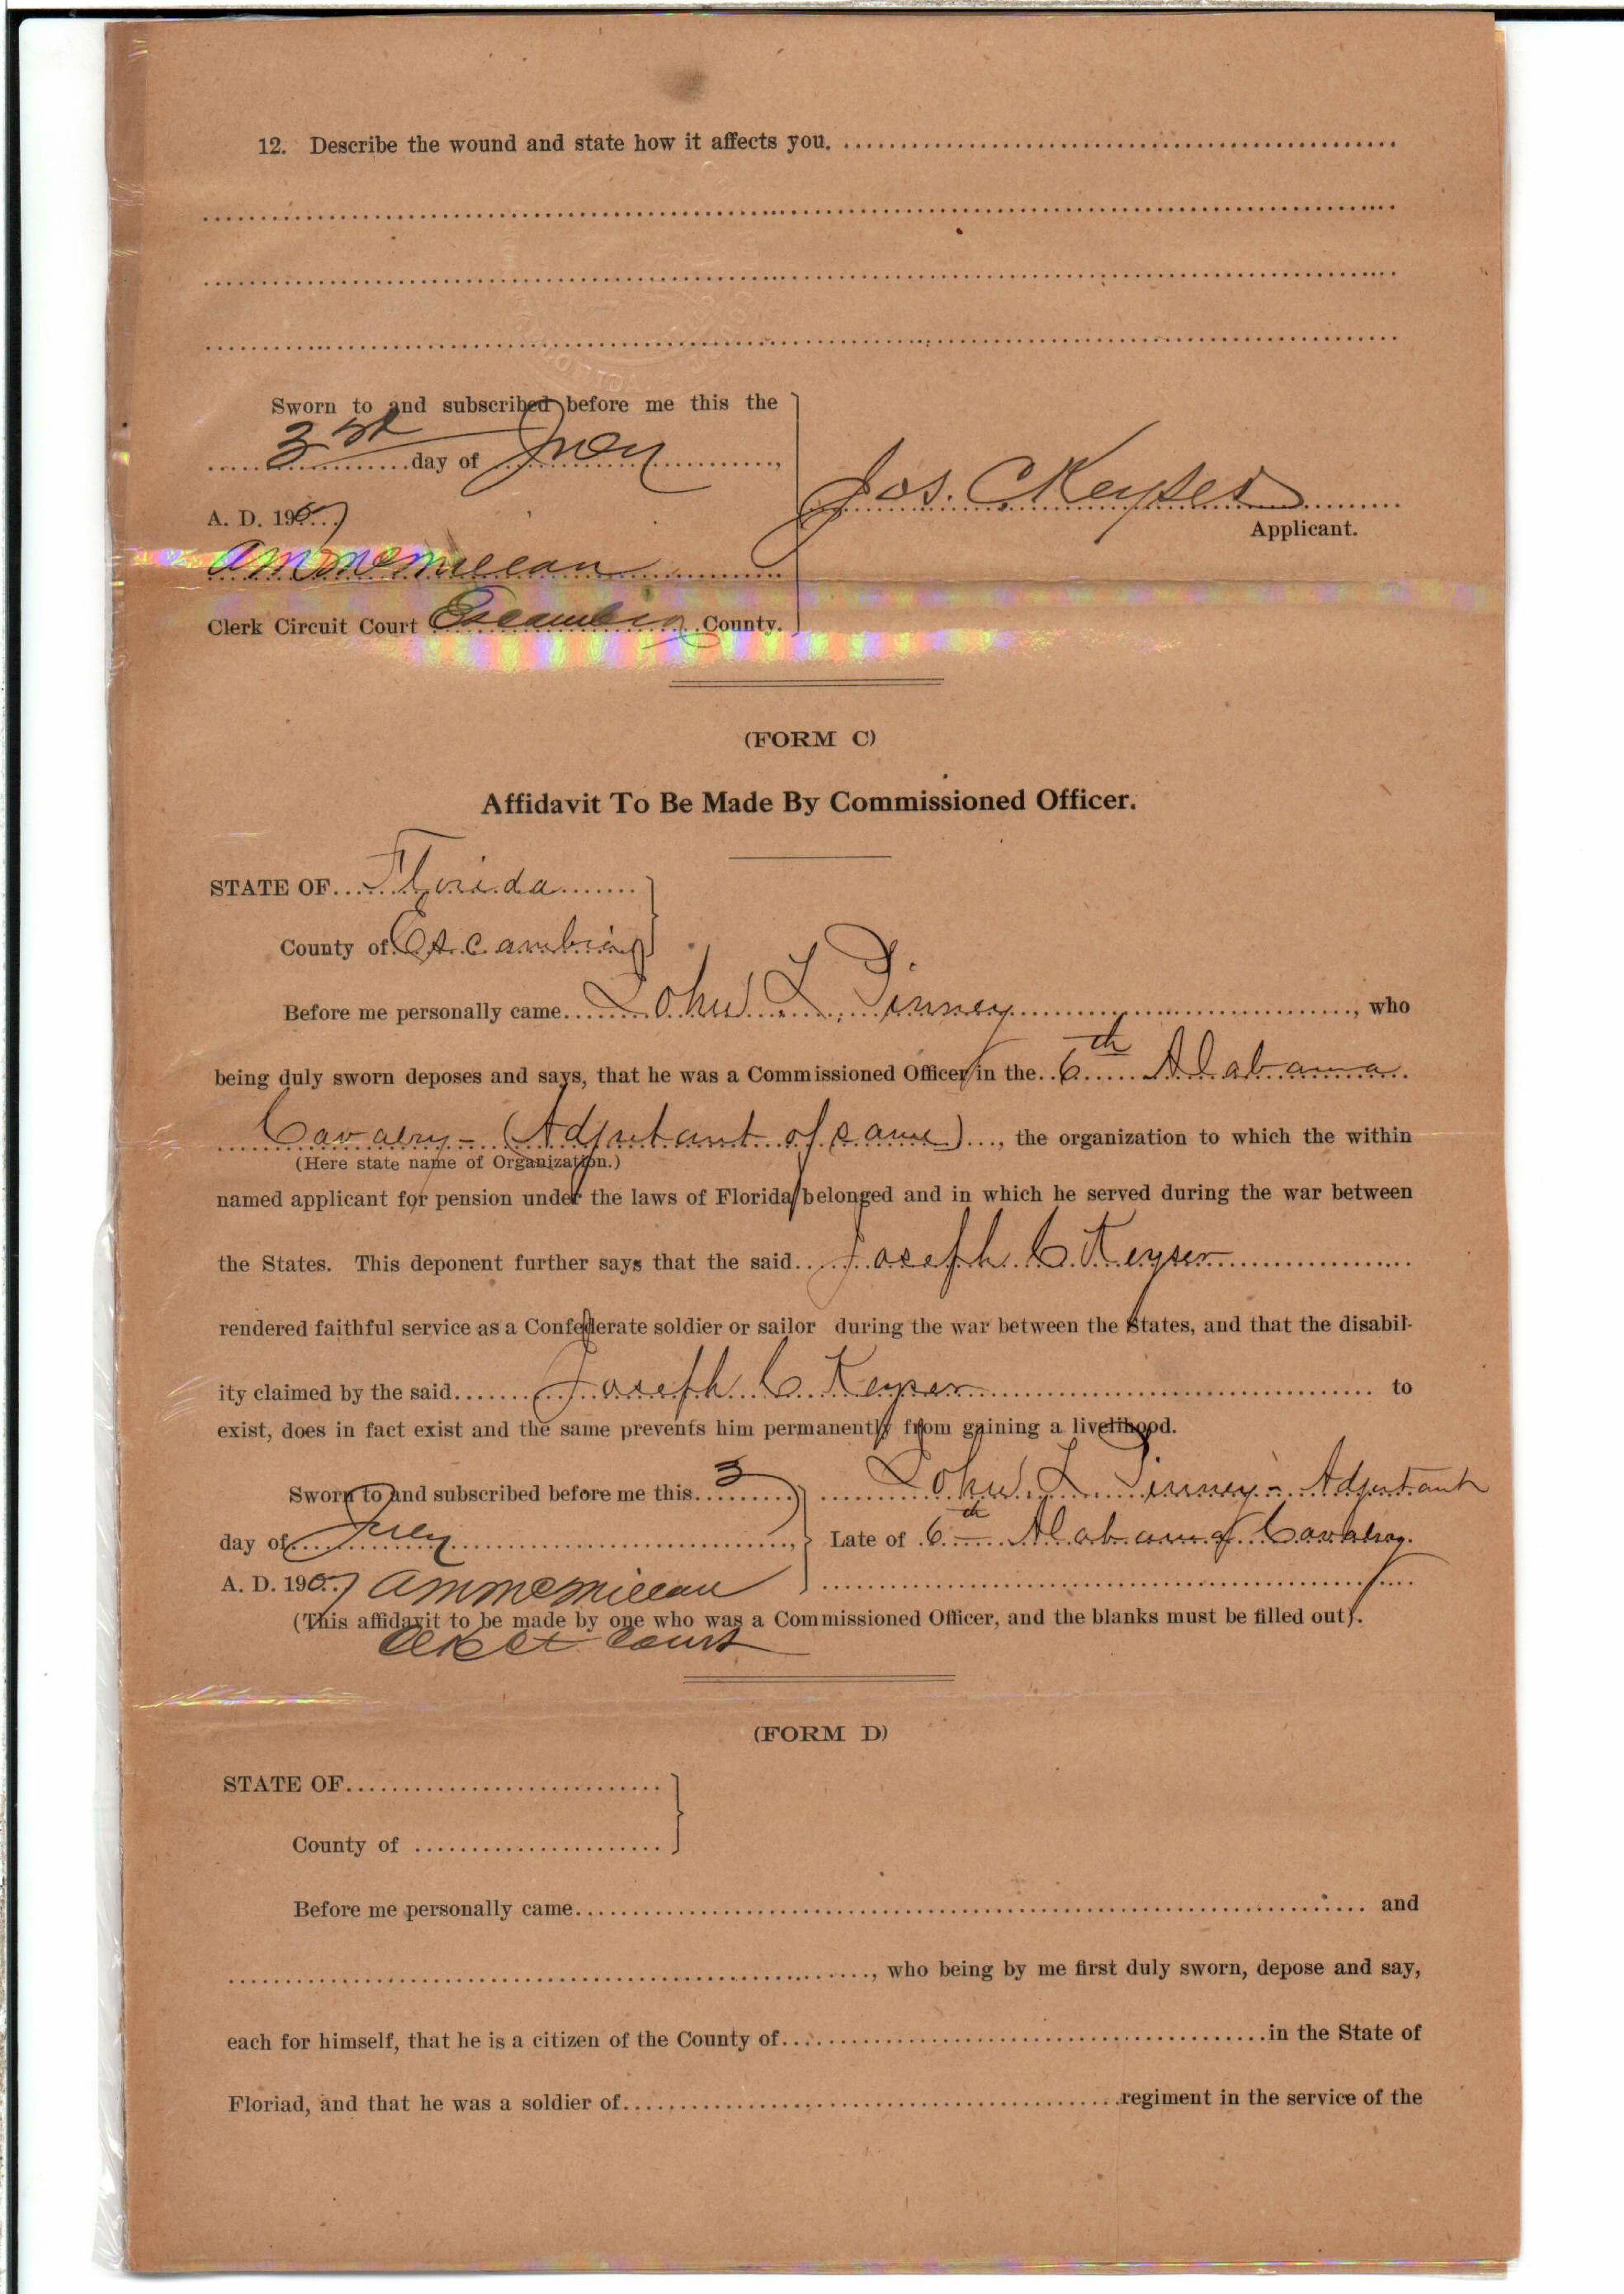 12. Describe the wound and state how it affects you.
Sworn to and subscribed before me this the
3rd day of July,
A. D. 1907
Jos. C Keyser
Applicant.
A M McMillan
Clerk Circuit Court Escambia County.
(FORM C)
Affidavit To Be Made By Commissioned Officer.
STATE OF Florida
County of Escambia
Before me personally came John L. Tinney, who
being duly sworn deposes and says, that he was a Commissioned Officer in the 6th Alabama
Cavalry - (Adjutant of same), the organization to which the within
(Here state name of Organization.)
named applicant for pension under the laws of Florida belonged and in which he served during the war between
the States. This deponent further says that the said Joseph C. Keyser
rendered faithful service as a Confederate soldier or sailor during the war between the States, and that the disabil-
ity claimed by the said Joseph C. Keyser to
exist, does in fact exist and the same prevents him permanently from gaining a livelihood.
Sworn to and subscribed before me this 3
John L. Tinney - Adjutant
day of July,
Late of 6th Alabama Cavalry.
A. D. 1907 A M McMillan
(This affidavit to be made by one who was a Commissioned Officer, and the blanks must be filled out).
Clk Ct Court
(FORM D)
STATE OF
County of
Before me personally came and
, who being by me first duly sworn, depose and say,
each for himself, that he is a citizen of the County of in the State of
Floriad, and that he was a soldier of regiment in the service of the